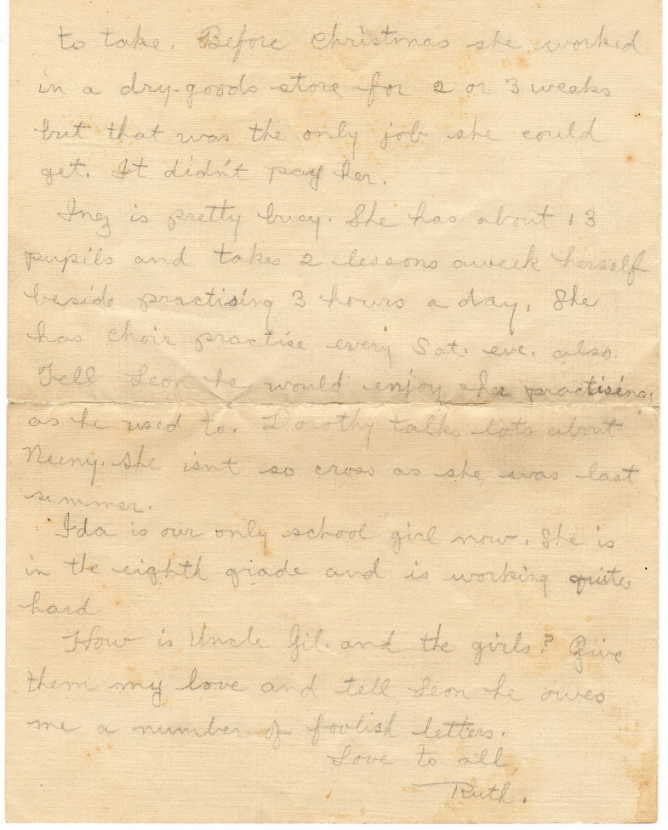 to take. Before Christmas she worked
in a dry-goods store for 2 or 3 weeks
but that was the only job she could
get. It didn't pay her.
Inez is pretty busy. She has about 13
pupils and takes 2 lessons aweek herself
beside practising 3 hours a day. She
has choir practise every Sat. eve. also.
Tell Leon he would enjoy her practising,
as he used to. Dorothy talks lots about
Neeny. She isn't so cross as she was last
summer.
Ida is our only school girl now. She is
in the eighth grade and is working quite
hard
How is Uncle Gil. and the girls? Give
them my love and tell Leon he owes
me a number of foolish letters.
Love to all
Ruth.